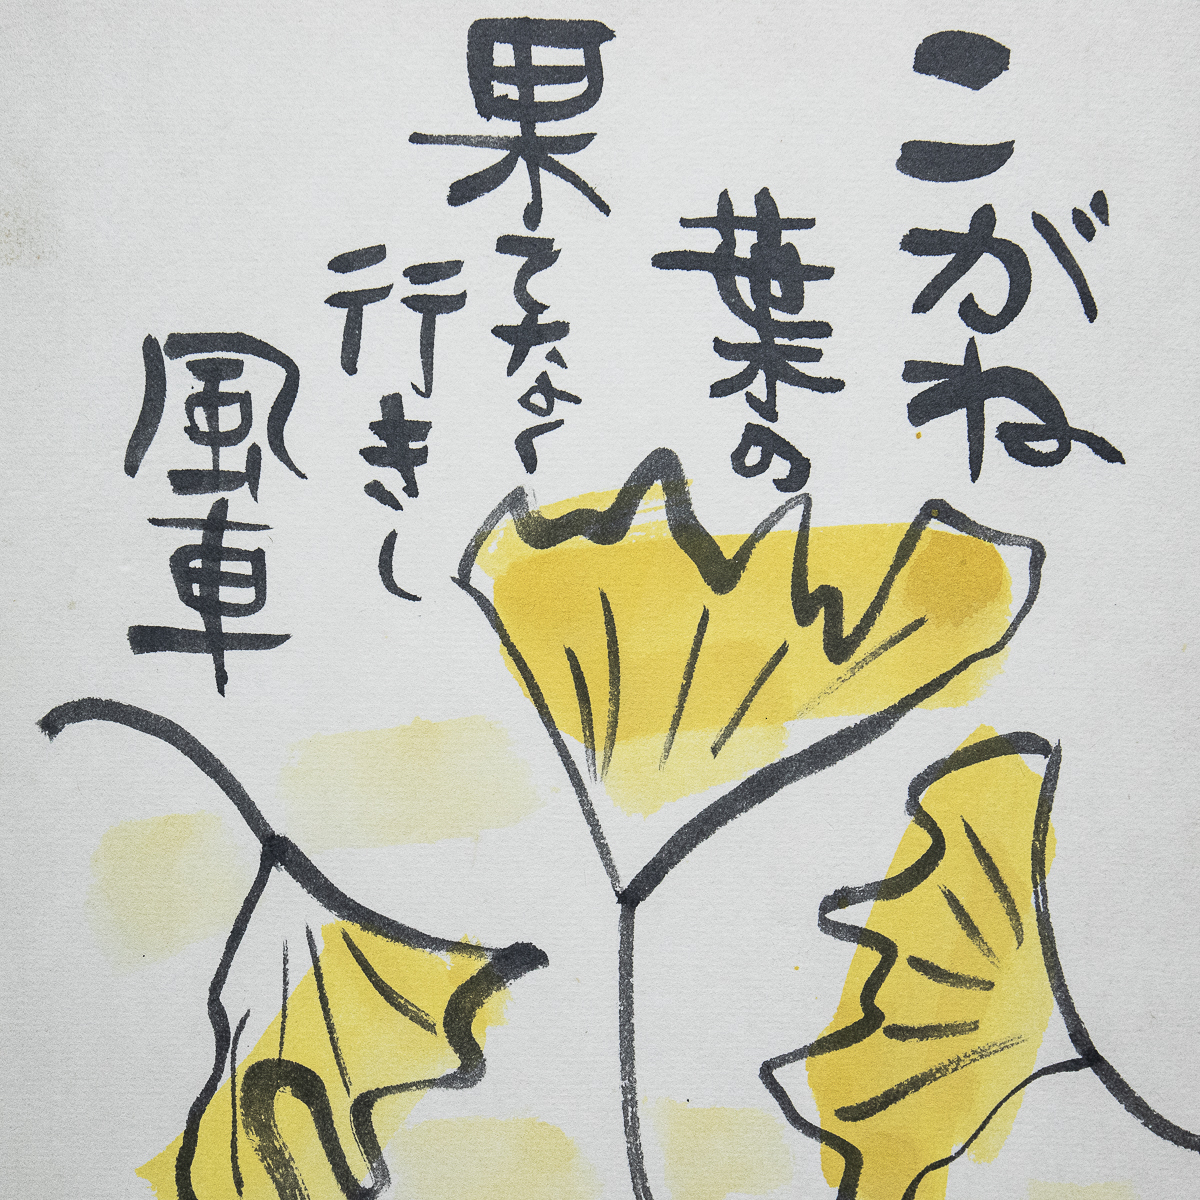 こがね
葉の
果てなく
行きし
風車